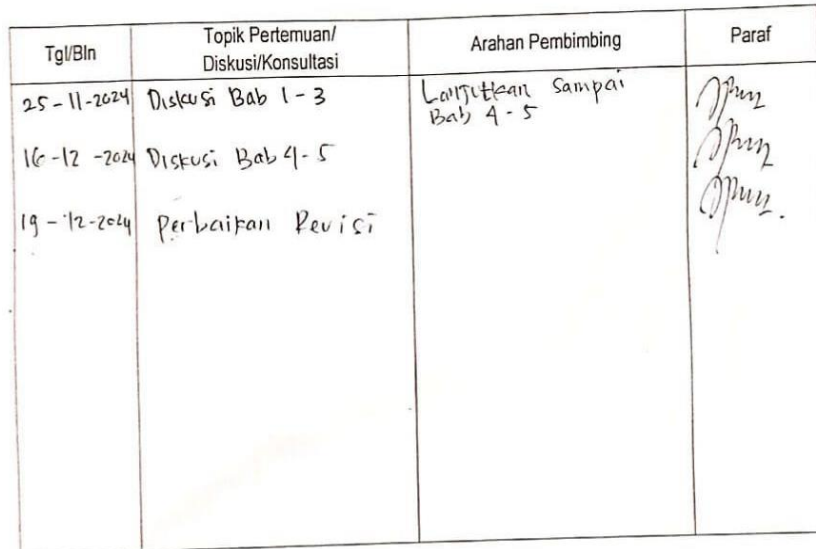 Tgl/Bln
Topik Pertemuan/
Diskusi/Konsultasi
Arahan Pembimbing
Paraf
25-11-2024 Diskusi Bab 1-3
Lanjutkan Sampai
Bab 4-5
16-12-2024 Diskusi Bab 4-5
19-12-2024 Perbaikan Revisi